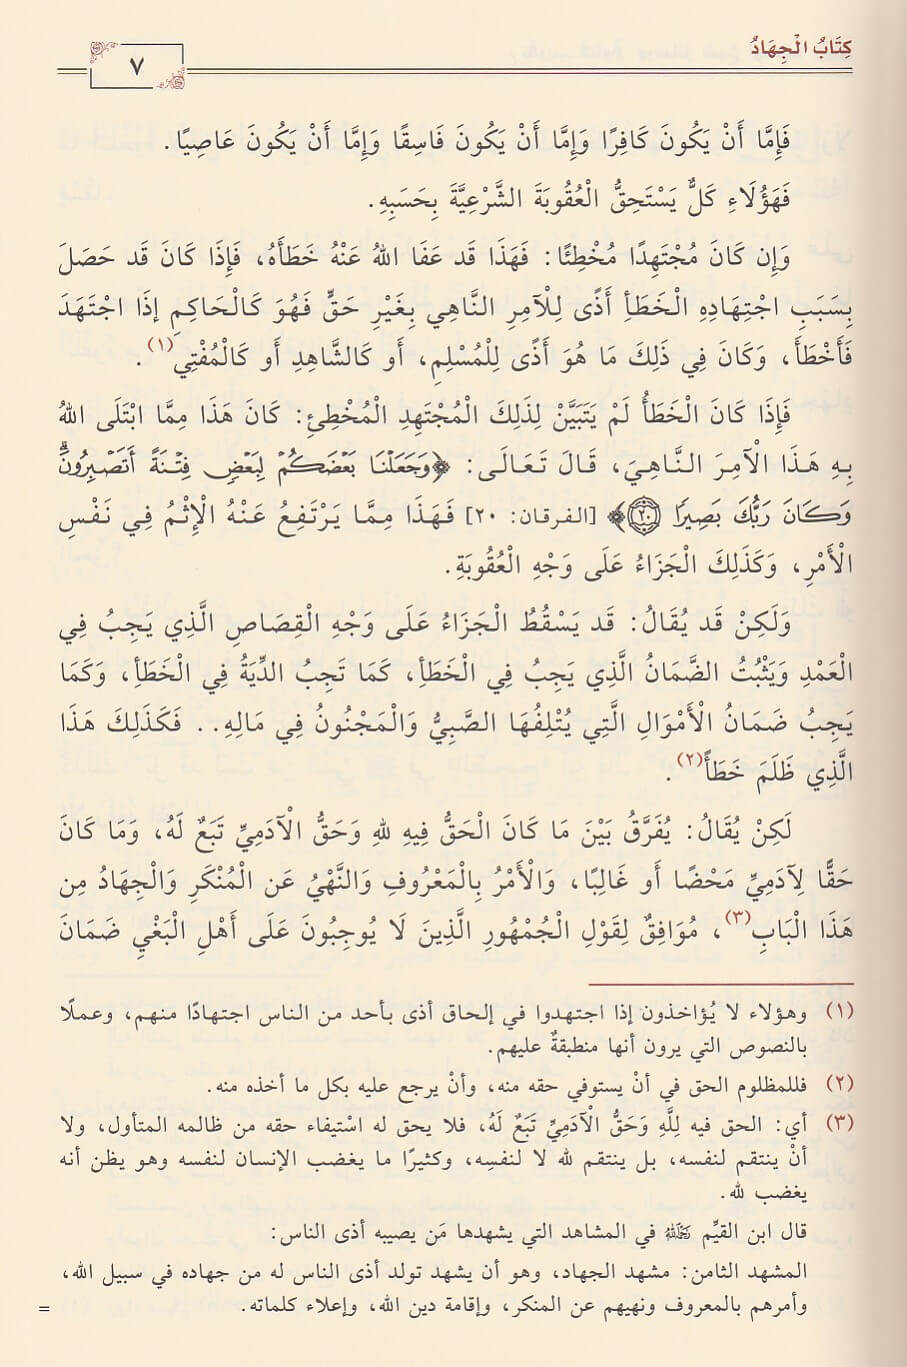 كِتَابُ الْجِهَادُ
٧
فَإِمَّا أَنْ يَكُونَ كَافِرًا وَإِمَّا أَنْ يَكُونَ فَاسِقًا وَإِمَّا أَنْ يَكُونَ عَاصِيًا.
فَهَؤُلَاءِ كَلٌّ يَسْتَحِقُّ الْعُقُوبَةَ الشَّرْعِيَّةَ بِحَسَبِهِ.
وَإِن كَانَ مُجْتَهِدًا مُخْطِئًا: فَهَذَا قَد عَفَا اللهُ عَنْهُ خَطَأَهُ، فَإِذَا كَانَ قَد حَصَلَ
بِسَبَبِ اجْتِهَادِهِ الْخَطَأِ أَذًى لِلْآمِرِ النَّاهِي بِغَيْرِ حَقٍّ فَهُوَ كَالْحَاكِمِ إذَا اجْتَهَدَ
فَأَخْطَأَ، وَكَانَ فِي ذَلِكَ مَا هُوَ أَذًى لِلْمُسْلِمِ، أَو كَالشَّاهِدِ أَو كَالْمُفْتِي(١).
فَإِذَا كَانَ الْخَطَأُ لَمْ يَتَبَيَّنْ لِذَلِكَ الْمُجْتَهِدِ الْمُخْطِئِ: كَانَ هَذَا مِمَّا ابْتَلَى اللهُ
بِهِ هَذَا الْآمِرَ النَّاهِيَ، قَالَ تَعَالَى: ﴿وَجَعَلْنَا بَعْضَكُمْ لِبَعْضٍ فِتْنَةً أَتَصْبِرُونَۗ
وَكَانَ رَبُّكَ بَصِيرًا ٢٠﴾ [الفرقان: ٢٠] فَهَذَا مِمَّا يَرْتَفِعُ عَنْهُ الْإِثْمُ فِي نَفْسِ
الْأَمْرِ، وَكَذَلِكَ الْجَزَاءُ عَلَى وَجْهِ الْعُقُوبَةِ.
وَلَكِنْ قَد يُقَالُ: قَد يَسْقُطُ الْجَزَاءُ عَلَى وَجْهِ الْقِصَاصِ الَّذِي يَجِبُ فِي
الْعَمْدِ وَيَثْبُتُ الضَّمَانُ الَّذِي يَجِبُ فِي الْخَطَأِ، كَمَا تَجِبُ الدِّيَةُ فِي الْخَطَأِ، وَكَمَا
يَجِبُ ضَمَانُ الْأَمْوَالِ الَّتِي يُتْلِفُهَا الصَّبِيُّ وَالْمَجْنُونُ فِي مَالِهِ.. فَكَذَلِكَ هَذَا
الَّذِي ظَلَمَ خَطَأً(٢).
لَكِنْ يُقَالُ: يُفَرَّقُ بَيْنَ مَا كَانَ الْحَقُّ فِيهِ لِلهِ وَحَقُّ الْآدَمِيِّ تَبَعٌ لَهُ، وَمَا كَانَ
حَقًّا لِآدَمِيٍّ مَحْضًا أَو غَالِبًا، وَالْأَمْرُ بِالْمَعْرُوفِ وَالنَّهْيُ عَن الْمُنْكَرِ وَالْجِهَادُ مِن
هَذَا الْبَابِ(٣)، مُوَافِقٌ لِقَوْلِ الْجُمْهُورِ الَّذِينَ لَا يُوجِبُونَ عَلَى أَهْلِ الْبَغْيِ ضَمَانَ
(١) وهؤلاء لا يُؤاخذون إذا اجتهدوا في إلحاق أذى بأحد من الناس اجتهادًا منهم، وعملًا
بالنصوص التي يرون أنها منطبقةٌ عليهم.
(٢) فللمظلوم الحق في أنْ يستوفي حقه منه، وأنْ يرجع عليه بكل ما أخذه منه.
(٣) أي: الحق فيه لِلَّهِ وَحَقُّ الْآدَمِيِّ تَبَعٌ لَهُ، فلا يحق له اسْتيفاء حقه من ظالمه المتأول، ولا
أنْ ينتقم لنفسه، بل ينتقم لله لا لنفسِه، وكثيرًا ما يغضب الإنسان لنفسه وهو يظن أنه
يغضب لله.
قال ابن القيِّم رَحِمَهُ اللهُ في المشاهد التي يشهدها مَن يصيبه أذى الناس:
المشهد الثامن: مشهد الجهاد، وهو أن يشهد تولد أذى الناس له من جهاده في سبيل الله،
وأمرهم بالمعروف ونهيهم عن المنكر، وإقامة دين الله، وإعلاء كلماته. =